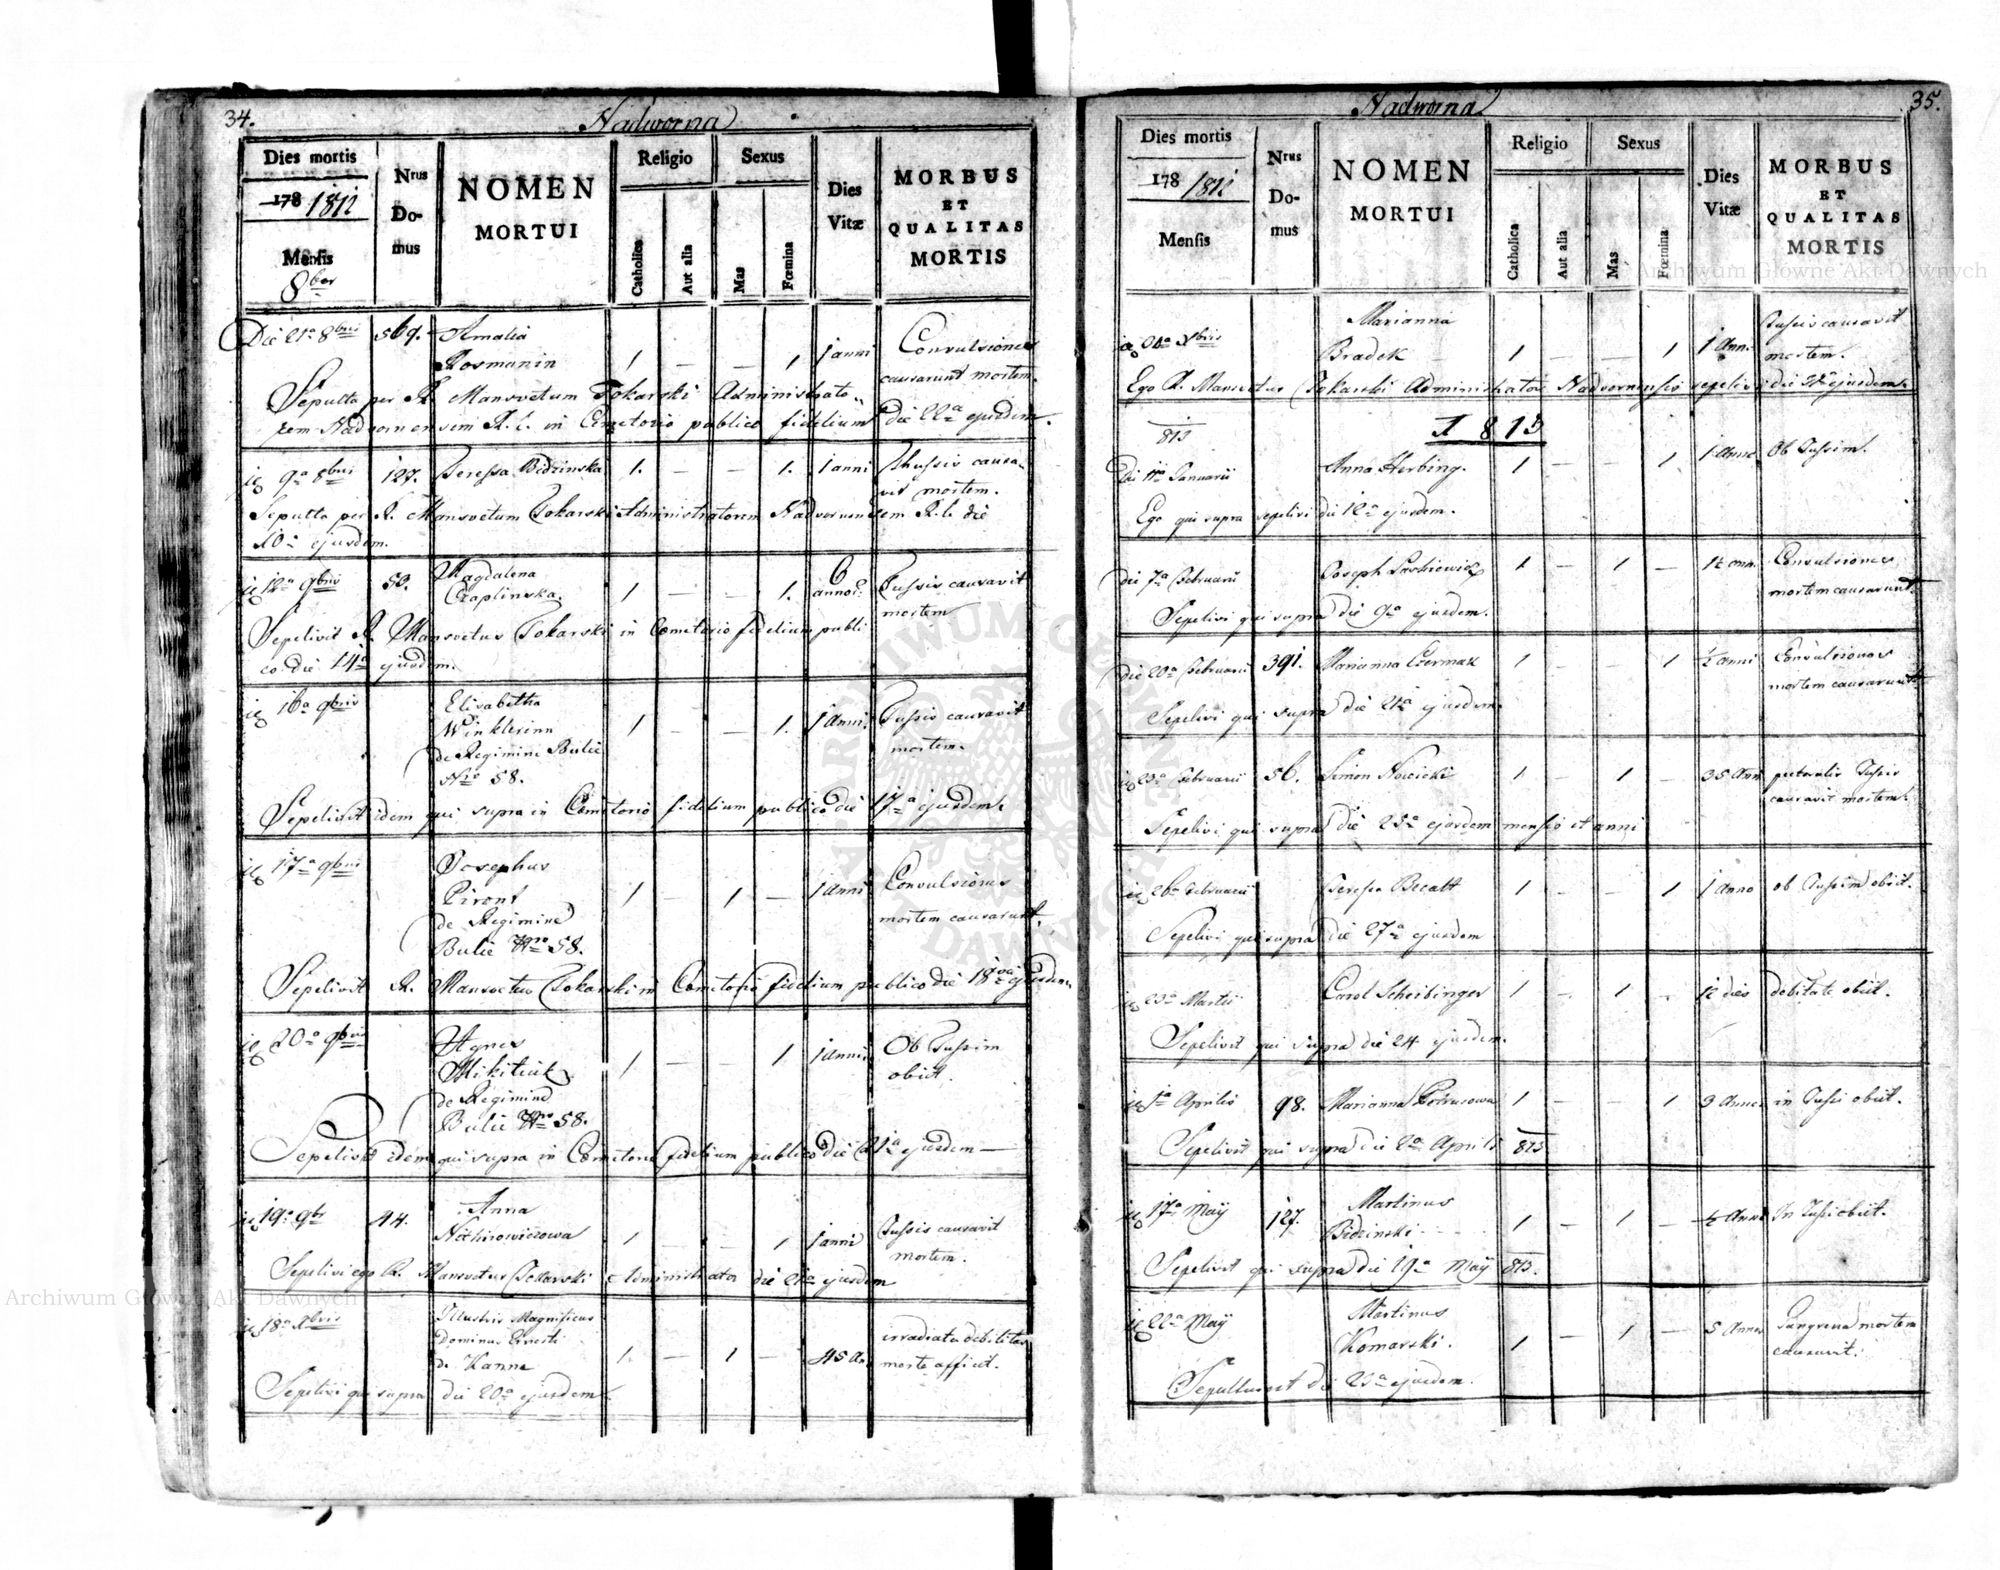 34.
Nadworna
Dies mortis
178 1812
Mensis
8ber
Nrus
Do-
mus
NOMEN
MORTUI
Religio
Catholica
Aut alia
Sexus
Mas
Fœmina
Dies
Vitæ
MORBUS
ET
QUALITAS
MORTIS
Die 21a 8bris 569. Amalia
Rosmanin 1 — — 1 1 anni Convulsiones
causarunt mortem.
Sepulta per R. Mansvetum Tokarski Administrato„
rem Nadvornensem R. L. in Cemetorio publico fidelium die 22a ejusdem.
9a 9bris 127. Teressa Bidzinska 1. — — 1. 1 anni Thussis causa-
vit mortem.
Sepulta per R. Mansvetum Tokarski Administratorem Nadvornensem R. L. die
10a ejusdem.
12a 9bris 50. Magdalena
Czaplinska. 1 — — 1. 6 annor. Tussis causavit
mortem
Sepelivit R. Mansvetus Tokarski in Cemetorio fidelium publi
co die 14a ejusdem.
16a 9bris Elisabetha
Winklerinn
de Regimine Bulie
Nro 58. 1 — — 1. 1 anni Tussis causavit
mortem.
Sepelivit idem qui supra in Cemetorio fidelium publico die 17a ejusdem.
17a 9bris Josephus
Piront
de Regimine
Bulie Nro 58. 1 — 1 — 1 anni Convulsiones
mortem causarunt.
Sepelivit R. Mansvetus Tokarski in Cemetorio fidelium publico die 18va ejusdem.
20a 9bris Agnes
Mikitiuk
de Regimine
Bulie Nro 58. 1 — — 1 1 anni Ob Tussim
obiit.
Sepelivit idem qui supra in Cemetorio fidelium publico die 21a ejusdem —
19a 9br 44. Anna
Nothirowiczowa 1 - - 1 1 anni Tussis causavit
mortem.
Sepelivi ego R. Mansvetus Tokarski Administrator die 21a ejusdem
18a Xbris Illustris Magnificus
Dominus Ernesti
de Kanne 1. — 1 — 45 An. irradiata debilitas
morte afficit.
Sepelivi qui supra die 20a ejusdem.
35.
Nadworna
Dies mortis
178 1812
Mensis
Nrus
Do-
mus
NOMEN
MORTUI
Religio
Catholica
Aut alia
Sexus
Mas
Fœmina
Dies
Vitæ
MORBUS
ET
QUALITAS
MORTIS
Xbris Marianna
Bradek 1 — — 1 1 Ann. Tussis causavit
mortem.
Ego R. Mansvetus Tokarski Administrator Nadvornensis sepelivi die ejusdem.
813 1813
Die 11a Januarii Anna Herbing. 1 — — 1 1 Anni Ob Tussim.
Ego qui supra sepelivi die 12a ejusdem.
Die 7a Februarii Joseph 1 — 1 — Convulsiones
mortem causarunt.
Sepelivi qui supra die 9a ejusdem.
Die 20a Februarii 391. Marianna Czermak 1 — — 1 ½ anni Convulsiones
mortem causarunt.
Sepelivi qui supra die 21a ejusdem.
23a Februarii 56. Simon Nowicki 1 — 1 — 35 Ann pectoralis Tussis
causavit mortem.
Sepelivi qui supra die 25a ejusdem mensis et anni
26a Februarii Teressa Becatt 1 — — 1 1 anno ob Tussim obiit.
Sepelivi qui supra die 27a ejusdem
23a Martii Carol Scheibinger 1 — 1 - 12 dies debitate obiit.
Sepelivit qui supra die 24 ejusdem.
1a Aprilis 98. Marianna 1 — — 1 3 Annor in Tussi obiit.
Sepelivit qui supra die 2a Aprilis 813
17a May 127. Martinus
Bidzinski 1 — 1 — ½ Anni In Tussi obiit.
Sepelivit qui supra die 19a May 813.
22a May Martinus
Komarski. 1 — 1 — 5 Annor Gangrena mortem
causavit.
Sepultus est die 23a ejusdem.
Archiwum Główne Akt Dawnych
Archiwum Główne Akt Dawnych
ARCHIWUM GŁÓWNE AKT DAWNYCH